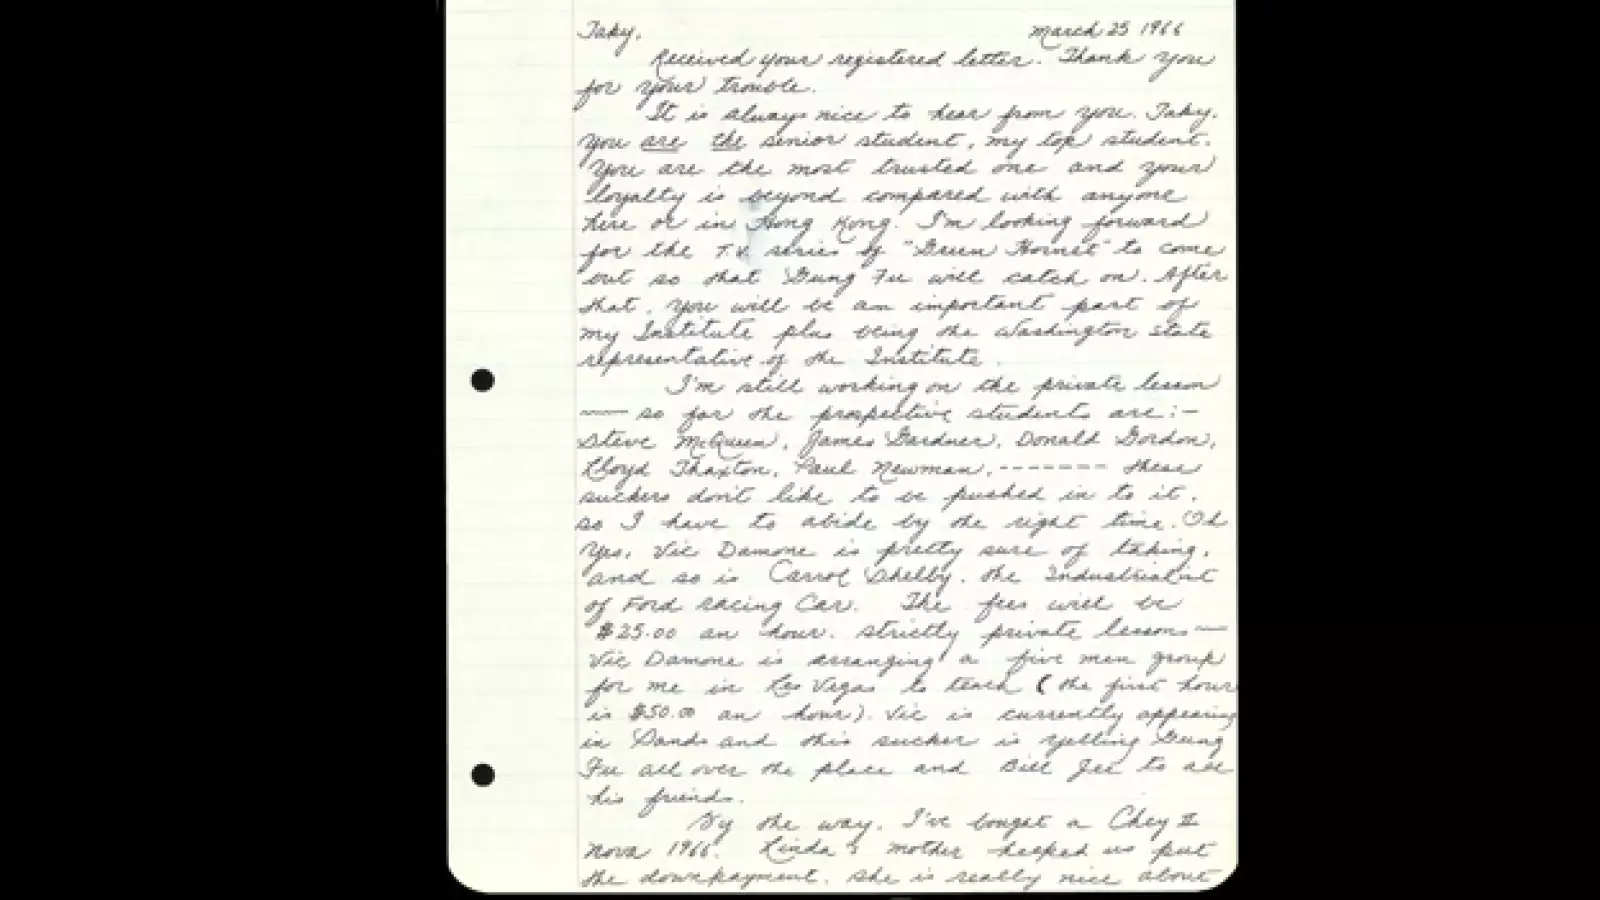 Taky, March 25 1966
Received your registered letter. Thank you
for your trouble.
It is always nice to hear from you. Taky.
you are the senior student, my top student.
You are the most trusted one and your
loyalty is beyond compared with anyone
here or in Hong Kong. I'm looking forward
for the T.V. series of "Green Hornet" to come
out so that Gung Fu will catch on. After
that, you will be an important part of
my Institute plus being the Washington state
representative of the Institute.
I'm still working on the private lesson
—— so far the prospective students are:-
Steve McQueen, James Gardner, Donald Gordon,
Lloyd Thaxton, Paul Newman, ------- these
suckers don't like to be pushed in to it.
so I have to abide by the right time. Oh
Yes, Vic Damone is pretty sure of taking,
and so is Carrol Shelby, the Industrialist
of Ford racing Car. The fees will be
$25.00 an hour. strictly private lesson —
Vic Damone is arranging a five men group
for me in Las Vegas to teach (the first hour
is $50.00 an hour). Vic is currently appearing
in Sands and this sucker is yelling Gung
Fu all over the place and Bill Jee to all
his friends.
By the way, I've bought a Chey II
Nova 1966. Linda's mother helped us put
the downpayment. she is really nice about